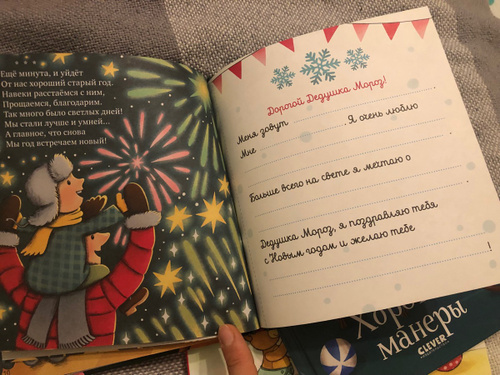 Ещё минута, и уйдёт
От нас хороший старый год.
Навеки расстаёмся с ним,
Прощаемся, благодарим.
Так много было светлых дней!
Мы стали лучше и умней...
А главное, что снова
Мы год встречаем новый!
Дорогой Дедушка Мороз!
Меня зовут . Я очень люблю
Мне
Больше всего на свете я мечтаю о
.
Дедушка Мороз, я поздравляю тебя
с Новым годом и желаю тебе
!
манеры
CLEVER